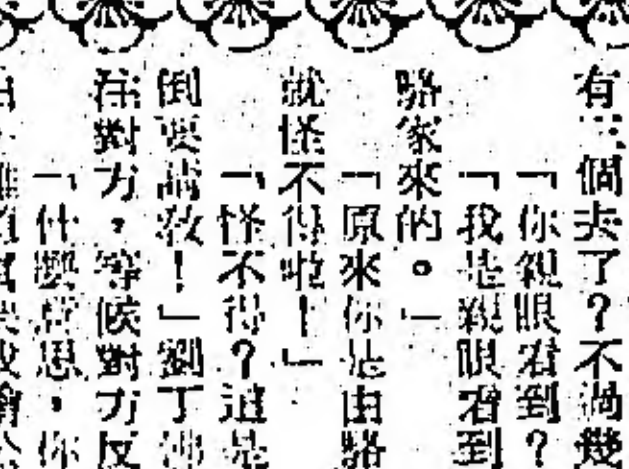 有三個去了？不過幾
「你親眼看到？
「我是親眼看到
駱家來的。」
「原來你是由駱
就怪不得啦！」
「怪不得？這是
倒要請教！」劉丁
對方，等候對方反
「什麼意思，你